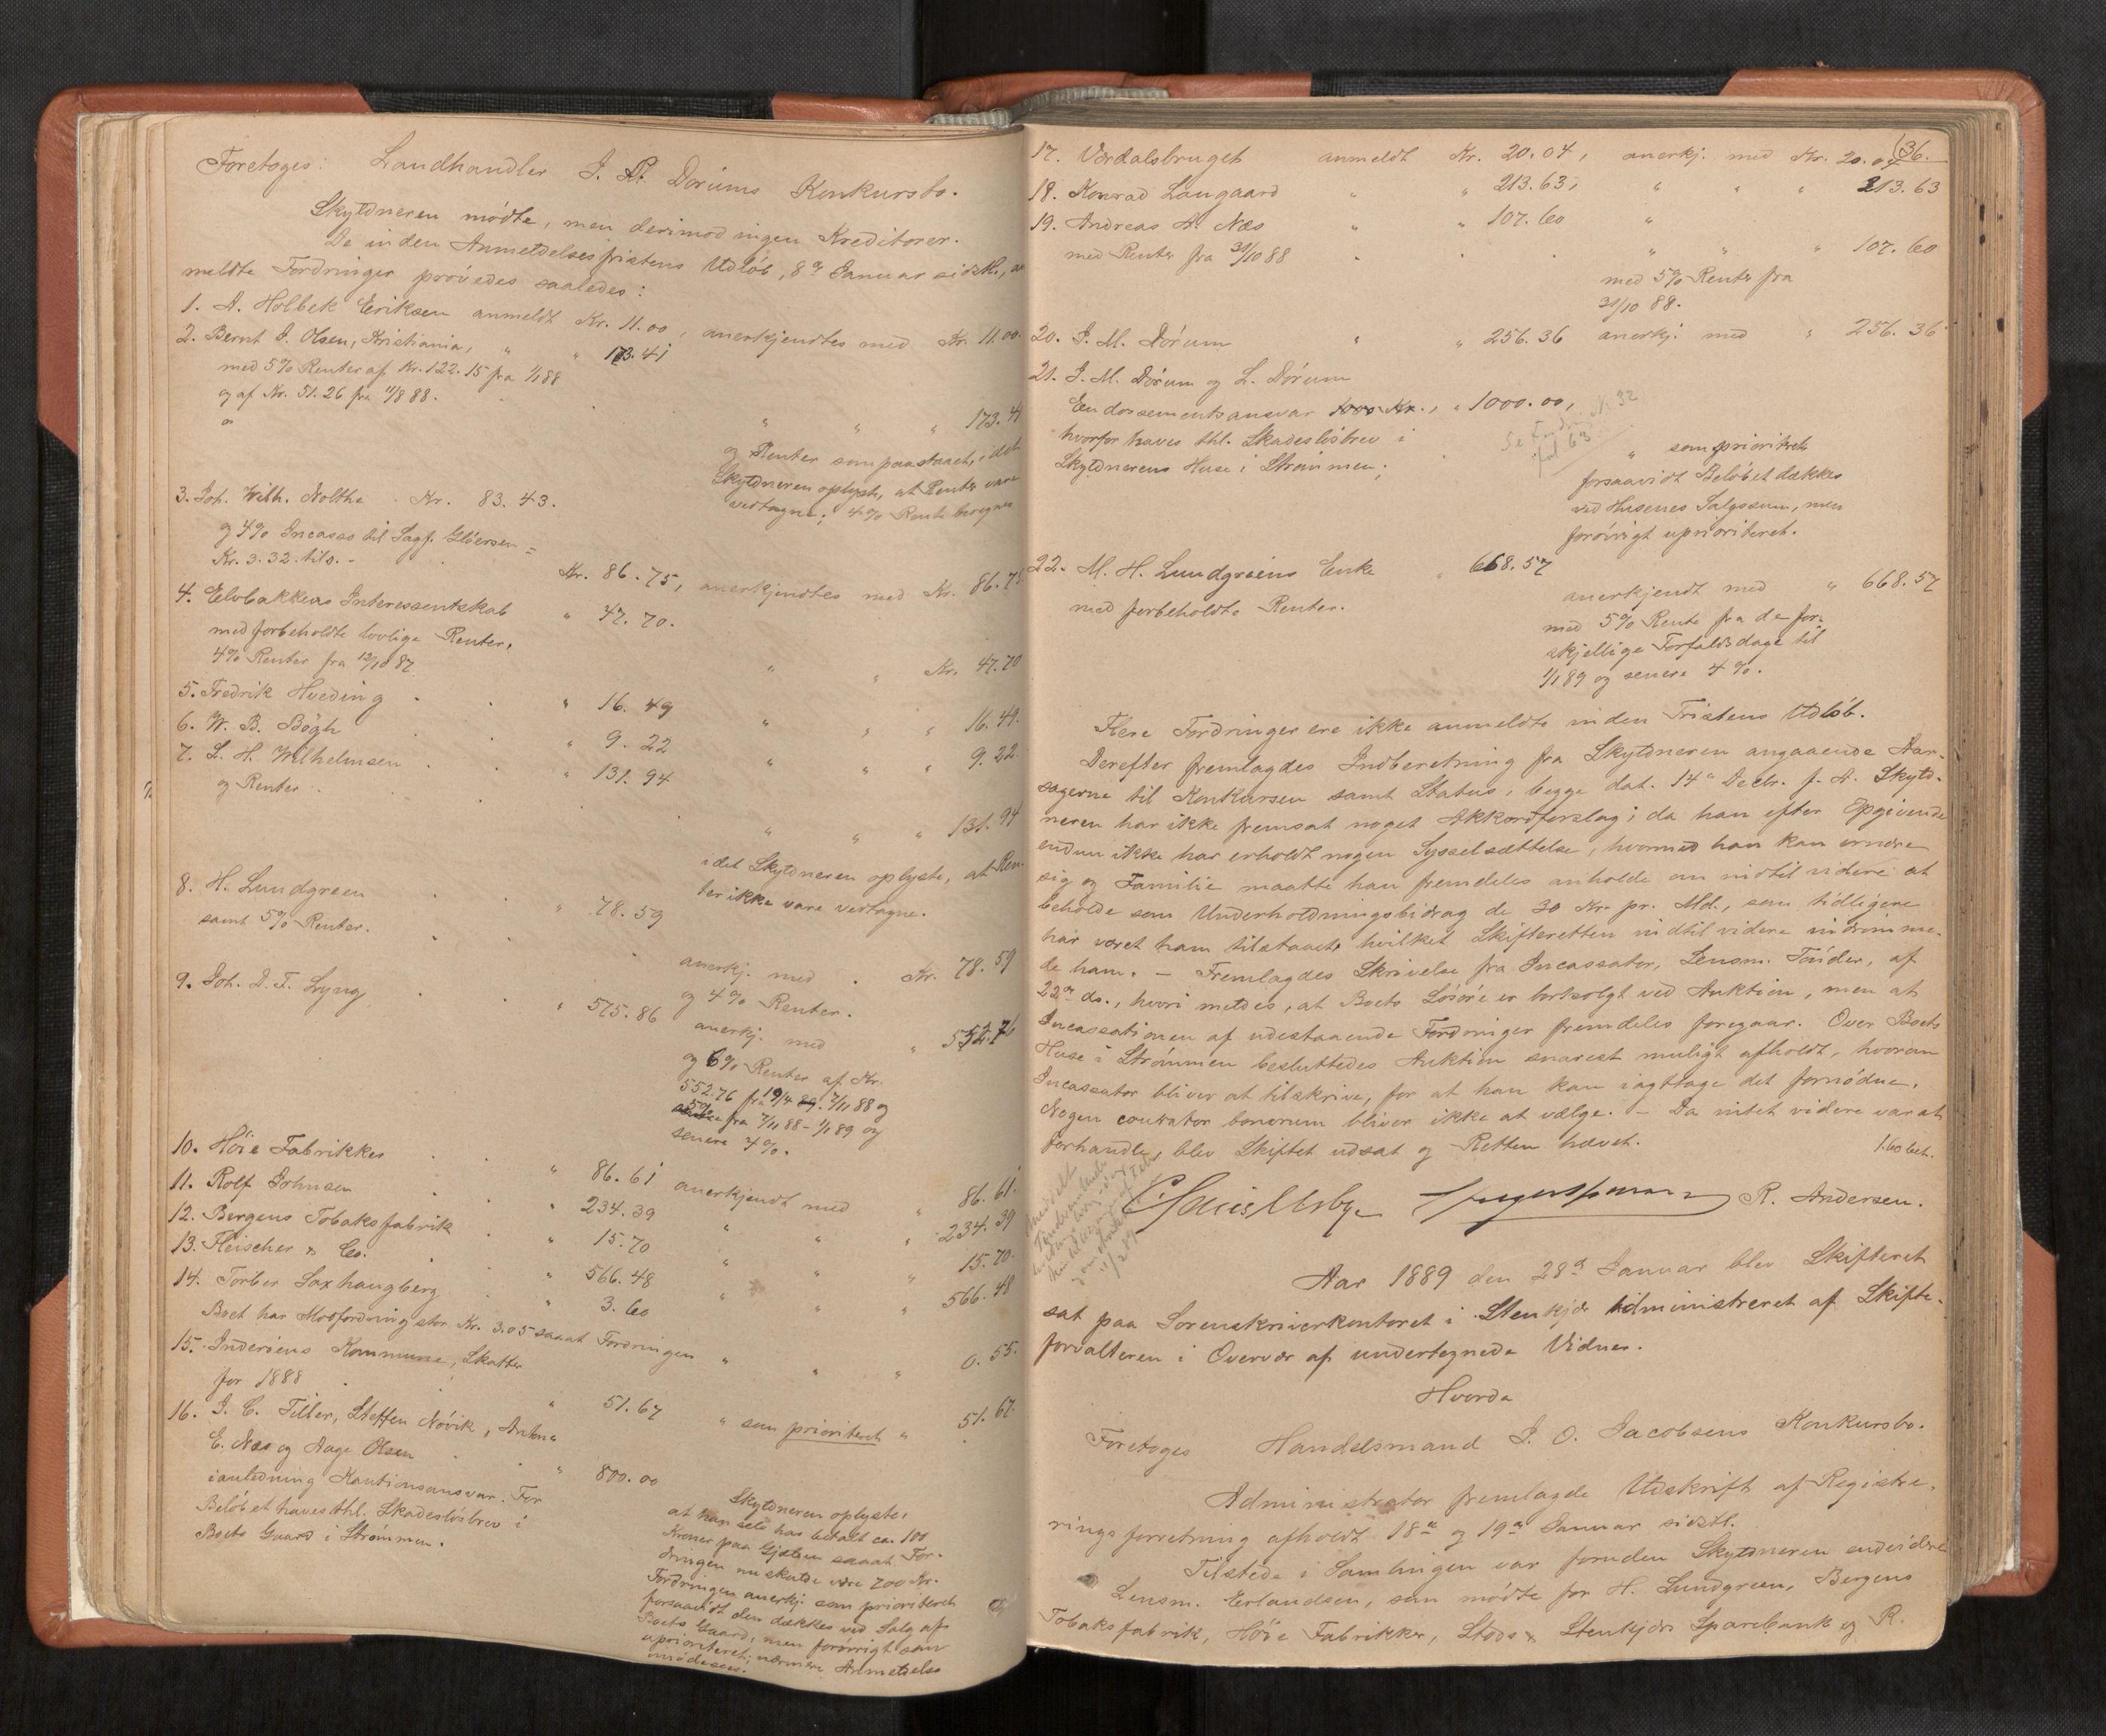 Foretoges: Landhandler J. P. Dorums Konkursbo.
Skyldneren mödte, men derimod ingen Kreditorer.
De inden Anmeldelsesfristens Udlöb, 8de Januar sidstl., an-
meldte Fordringer prövedes saaledes:
1. A. Holbek Eriksen anmeldt Kr. 11.00, anerkjendtes med Kr. 11.00
2. Bernt J. Olsen, Kristiania, " " 173.41
med 5% Renter af Kr. 122.15 fra 1/1 88
og af Kr. 51.26 fra 11/8 88.
" " " 173.41
og Renter som paastaaet, idet
Skyldneren oplyste, at Renter vare
vedtagne; 4% Rente beregnes
3. Joh. Wilh. Nolthe Kr. 83.43.
og 4% Incasso til Sagf. Glöersen =
Kr. 3.32. tils. - Kr. 86.75, anerkjendtes med Kr. 86.75
4. Elvbakkens Interessentskab " 47.70.
med forbeholdte lovlige Renter,
4% Renter fra 12/10 87 " " Kr. 47.70
5. Fredrik Hveding " 16.49 " " " 16.49.
6. W. B. Bögh " 9.22 " " " 9.22
7. L. H. Wilhelmsen " 131.94
og Renter " " " 131.94
idet Skyldneren oplyste, at Ren-
ter ikke vare vedtagne.
8. H. Lundgreen " 78.59
samt 5% Renter.
anerkj. med Kr. 78.59
og 4% Renter.
9. Joh. D. F. Lyng " 575.86
anerkj. med " 552.76
og 6% Renter af Kr.
552.76 fra 19/4 - 7/11 88 og
5% fra 7/11 88 - 1/1 89 og
senere 4%.
10. Höie Fabrikker " 86.61 anerkjendt med " 86.61.
11. Rolf Johnsen " 234.39 " " " 234.39
12. Bergens Tobaksfabrik " 15.70 " " " 15.70.
13. Fleischer & Co. " 566.48 " " " 566.48
14. Torber Saxhaugberg " 3.60
Boet har Modfordring stor Kr. 3.05 saaat Fordringen " " " 0.55.
15. Inderöens Kommune, Skatter
for 1888 " 51.67 " som prioriteret " 51.67.
16. J. C. Tiller, Steffen Növik, Anton
E. Næs og Aage Olsen " 800.00
i anledning Kautionsansvar. For
Belöbet haves thl. Skadeslösbrev i
Boets Gaard i Strömmen.
Skyldneren oplyste,
at han selv har betalt ca. 100
Kroner paa Gjælden saaat For-
dringen nu skulde være 700 Kr.
Fordringen anerkj. som prioriteret
forsaavidt den dækkes ved Salg af
Boets Gaard, men forövrigt som
uprioriteret; nærmere Anmeldelse
imödesees.
36.
17. Værdalsbruget anmeldt Kr. 20.04, anerkj. med Kr. 20.04
18. Konrad Langaard " " 213.63, " " " 213.63
19. Andreas A. Næs " " 107.60 "
med Renter fra 31/10 88 " " " 107.60
med 5% Renter fra
31/10 88.
20. J. M. Dörum " " 256.36 anerkj. med " 256.36
21. J. M. Dörum og L. Dörum
Endossementsansvar 1000 Kr., " 1000.00,
hvorfor haves thl. Skadeslösbrev i
Skyldnerens Huse i Strömmen;
" som prioriteret
forsaavidt Belöbet dækkes
ved Husenes Salgssum, men
forövrigt uprioriteret.
22. M. H. Lundgreens Enke " 668.57
med forbeholdte Renter.
anerkjendt med " 668.57
med 5% Rente fra de for-
skjellige Forfaldsdage til
1/1 89 og senere 4%.
Flere Fordringer ere ikke anmeldte inden Fristens Udlöb.
Derefter fremlagdes Indberetning fra Skyldneren angaaende Aar-
sagerne til Konkursen samt Status, begge dat. 14de Decbr. f. A. Skyld-
neren har ikke fremsat noget Akkordforslag; da han efter Opgivende
endnu ikke har erholdt nogen Sysselsættelse, hvormed han kan ernære
sig og Familie maatte han fremdeles anholde om indtil videre at
beholde som Underholdningsbidrag de 30 Kr. pr. Md., som tidligere
har været ham tilstaaet, hvilket Skifteretten indtil videre indrömme-
de ham. – Fremlagdes Skrivelse fra Incassator, Lensm. Tönder, af
22de ds., hvori meldes, at Boets Lösöre er bortsolgt ved Auktion, men at
Incassationen af udestaaende Fordringer fremdeles foregaar. Over Boets
Huse i Strömmen besluttedes Auktion snarest muligt afholdt, hvorom
Incassator bliver at tilskrive, for at han kan iagttage det fornödne.
Nogen courator bonorum bliver ikke at vælge. – Da intet videre var at
forhandle, blev Skiftet udsat og Retten hævet. 1.60 bet.
R. Andersen.
Aar 1889 den 28de Januar blev Skifteret
sat paa Sorenskriverkontoret i Stenkjær administreret af Skifte-
forvalteren i Overvær af undertegnede Vidner.
Hvorda
Foretoges Handelsmand J. O. Jacobsens Konkursbo.
Administrator fremlagde Udskrift af Registre-
ringsforretning afholdt 18de og 19de Januar sidstl.
Tilstede i Samlingen var foruden Skyldneren endvidere
Lensm. Erlandsen, som mödte for H. Lundgreen, Bergens
Tobaksfabrik, Höie Fabrikker, Stods & Stenkjærs Sparebank og R.